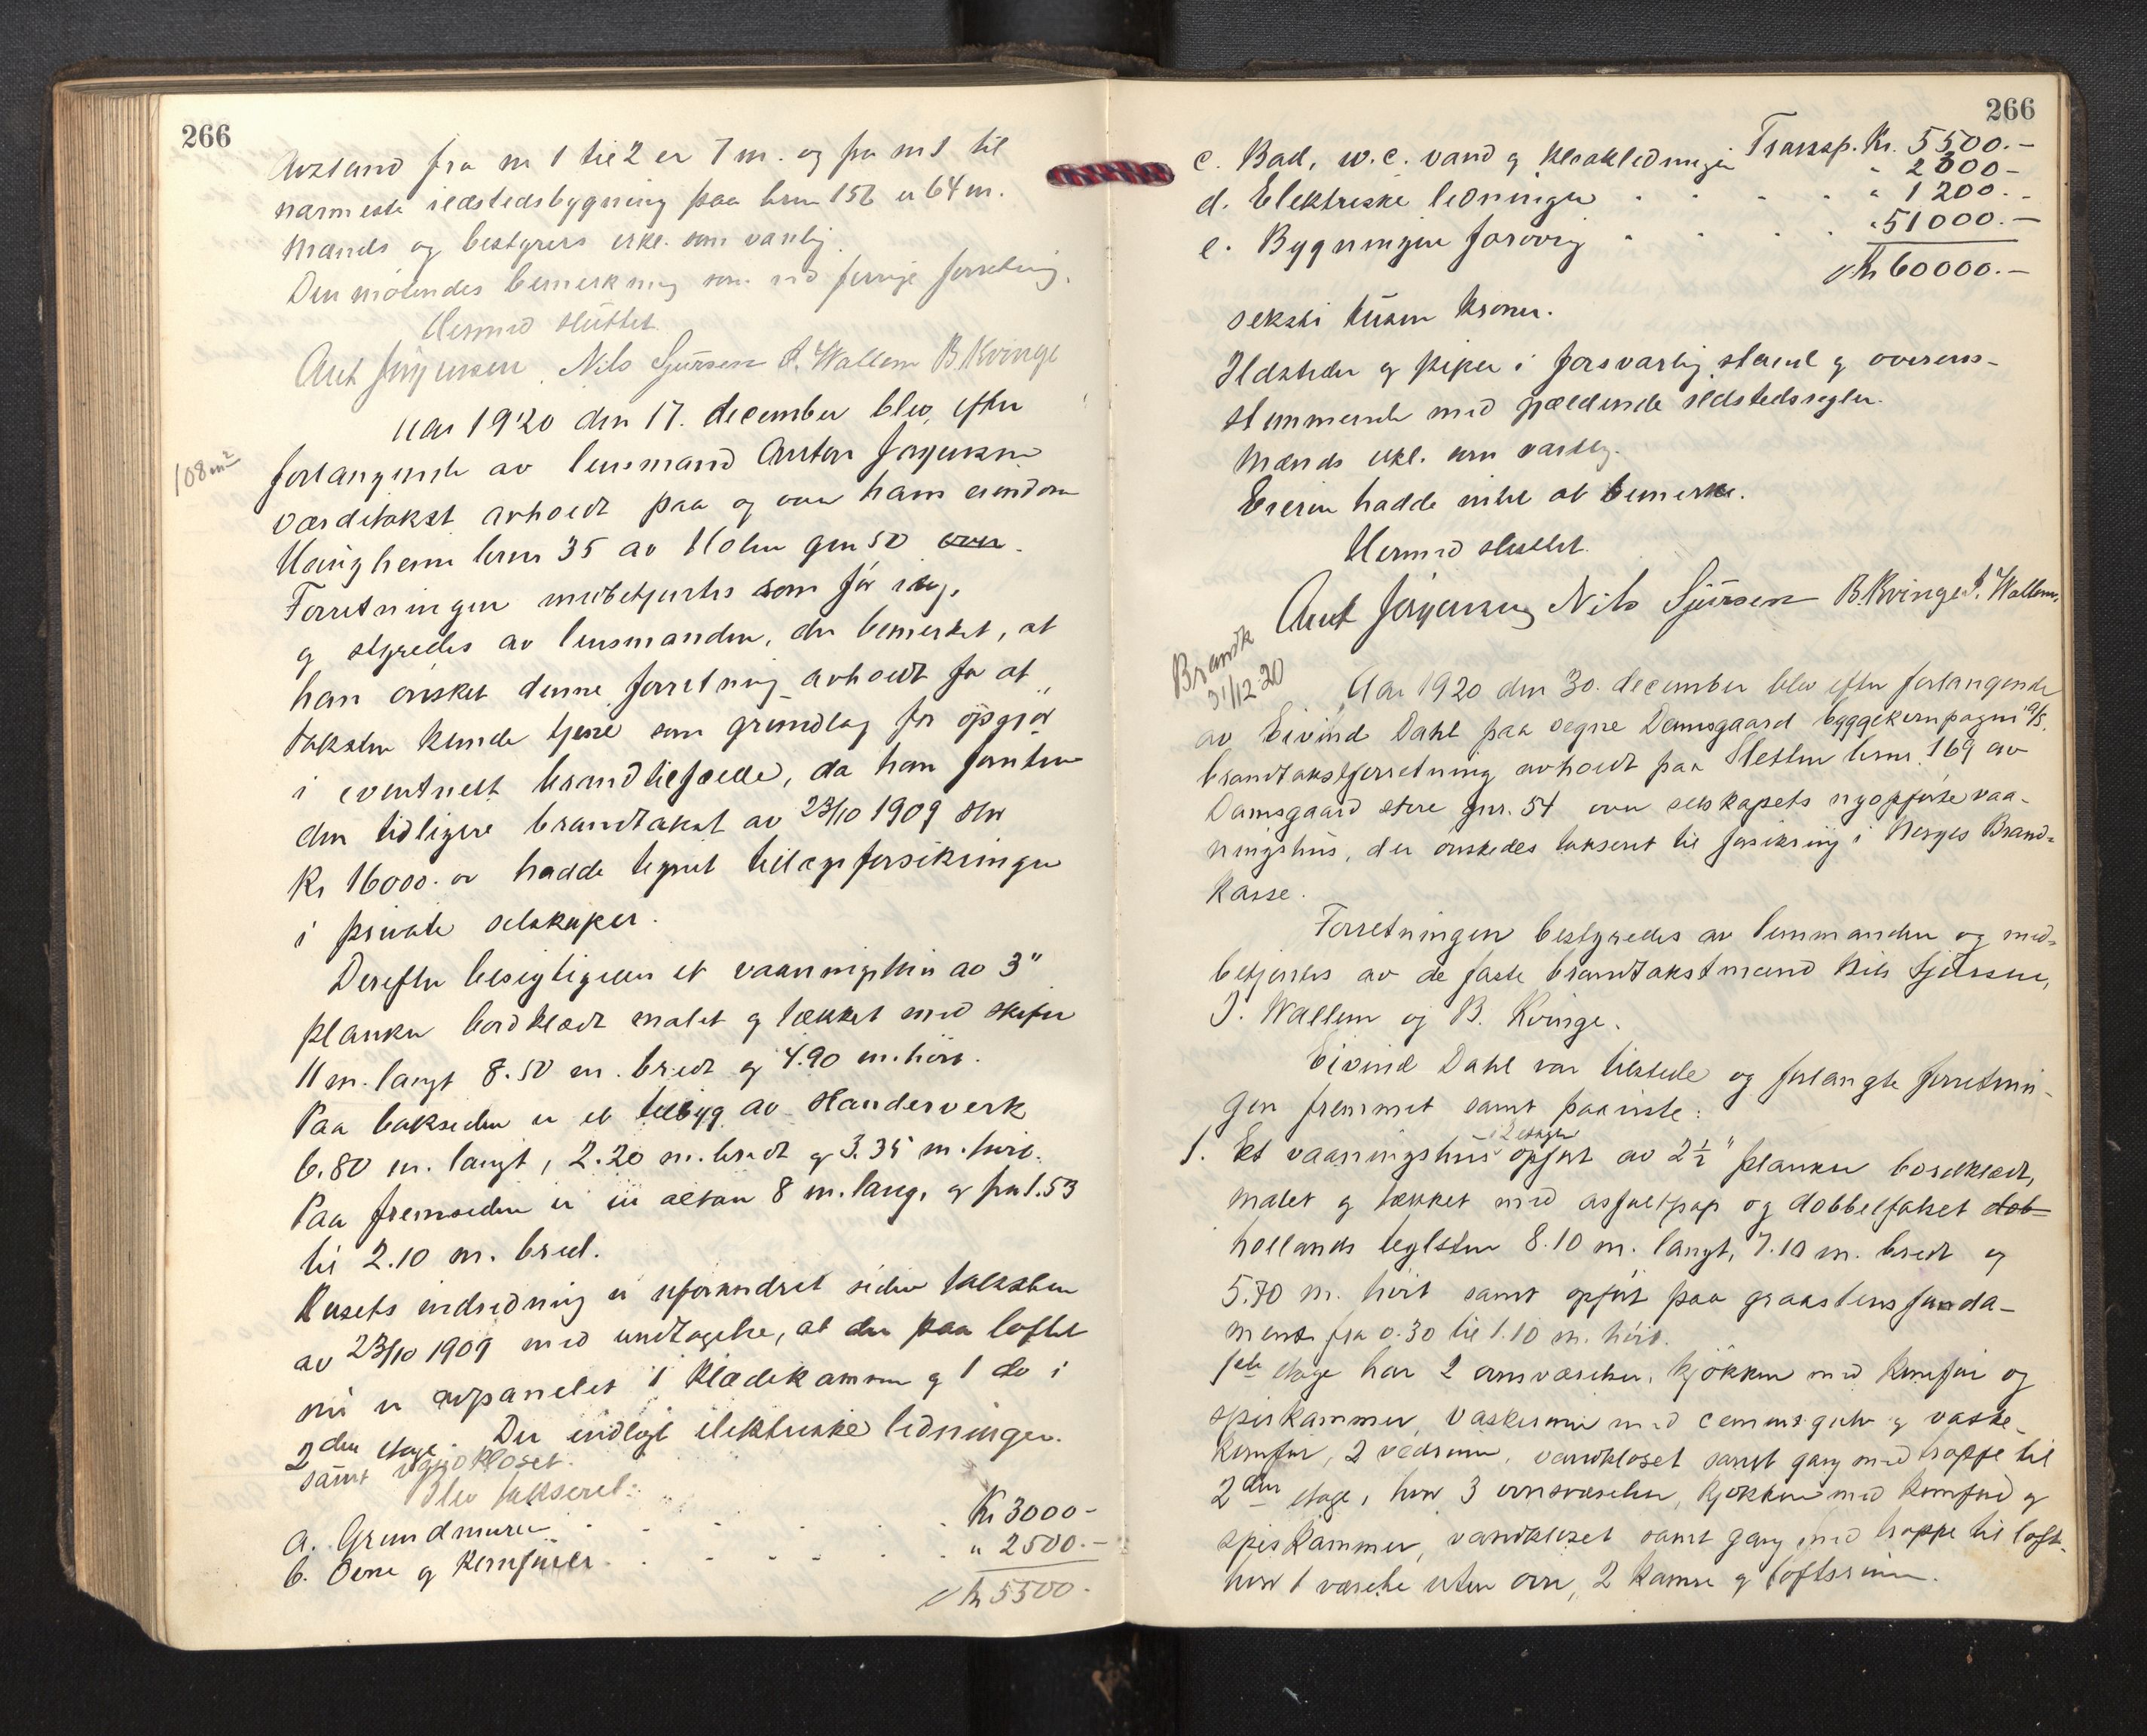 266
Avstand fra nr 1 til 2 er 7 m. og fra nr 1 til
nærmeste ildstedsbygning paa brnr 156 er 64 m.
Mænds og bestyrers erkl. som vanlig.
Den mötendes bemerkning som ved forrige forretning.
Hermed sluttet
Ant Jörgensen Nils Sjursen J. Wallem B. Kvinge
108 m²
Aar 1920 den 17. december blev efter
forlangende av lensmand Anton Jörgensen
værditakst avholdt paa og over hans eiendom
Haugheim brnr 35 av Holen gnr 50 over.
Forretningen medbetjentes som för
og styredes av lensmanden, der bemerket, at
han önsket denne forretning avholdt for at
taksten kunde tjene som grundlag for opgjör
i eventuelt brandtilfælde, da han foruten
den tidligere brandtakst av 23/10 1909 stor
Kr 16000.- hadde tegnet tillægsforsikringer
i private selskaper.
Derefter besigtigedes et vaaningshus av 3"
planker bordklædt malet og tækket med skifer
11 m. langt 8.50 m. bredt og 7.90 m. höit.
Paa baksiden er et tilbyg av standerverk
6.80 m. langt, 2.20 m. bredt og 3.35 m. höit.
Paa fremsiden er en altan 8 m. lang, og fra 1.53
til 2.10 m. bred.
Husets indredning er uforandret siden taksten
av 23/10 1909 med undtagelse, at der paa loftet
nu er avpanelet 1 klædekammer og 1 do i
2den etage. Der indlagt elektriske ledninger.
samt
Blev takseret:
a. Grundmuren . . . . . Kr 3000-
b. Ovne og komfurer . . . . " 2500.-
Kr 5500.
266
Transp. Kr. 5500.-
c. Bad, w.c. vand og kloakledninger " 2300-
d. Elektriske ledninger . . . . " 1200.-
e. Bygningen forövrig . . . . " 51000.-
Kr 60000.-
seksti tusen kroner.
Ildsteder og piper i forsvarlig stand og overens-
stemmende med gjældende ildstedsregler.
Mænds erkl. som vanlig.
Eieren hadde intet at bemerke.
Hermed sluttet.
Ant Jörgensen Nils Sjursen B. Kvinge J. Wallem.
Brandk
31/12 20
Aar 1920 den 30. december blev efter forlangende
av Eivind Dahl paa vegne Damsgaard byggekompagni A/S.
brandtakstforretning avholdt paa Sletten brnr. 169 av
Damsgaard store gnr. 54 over selskapets nyopförte vaa-
ningshus, der önskedes takseret til forsikring i Norges Brand-
kasse.
Forretningen bestyredes av lensmanden og med-
betjentes av de faste brandtakstmænd Nils Sjursen,
J. Wallem og B. Kvinge.
Eivind Dahl var tilstede og forlangte forretnin-
gen fremmet samt paaviste:
1. Et vaaningshus i 2 etager opfört av 2½" planker bordklædt,
malet og tækket med asfaltpap og dobbelfalset dob-
hollandsk teglsten 8.10 m. langt, 7.10 m. bredt og
5.70 m. höit samt opfört paa graastensfunda-
ment fra 0.30 til 1.10 m. höit.
1ste etage har 2 ovnsværelser, kjökken med komfur og
spiskammer, vaskerum med cementgulv og vaske-
komfur, 2 vedrum, vandkloset samt gang med trappe til
2den etage, hvor 3 ovnsværelser, kjökken med komfur og
spiskammer, vandkloset samt gang med trappe til loft.
hvor 1 værelse uten ovn, 2 kammer og loftsrum.